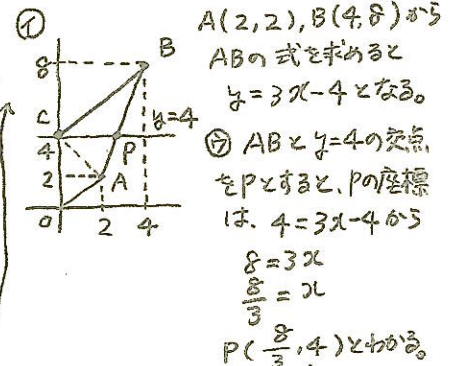 ㋑
B
8
C
y=4
4
P
2
A
0
2
4
A(2,2),B(4,8)から
ABの式を求めると
y=3x-4となる。
㋒ ABとy=4の交点
をPとすると、Pの座標
は、4=3x-4から
8=3x
8/3=x
P(8/3,4)とわかる。